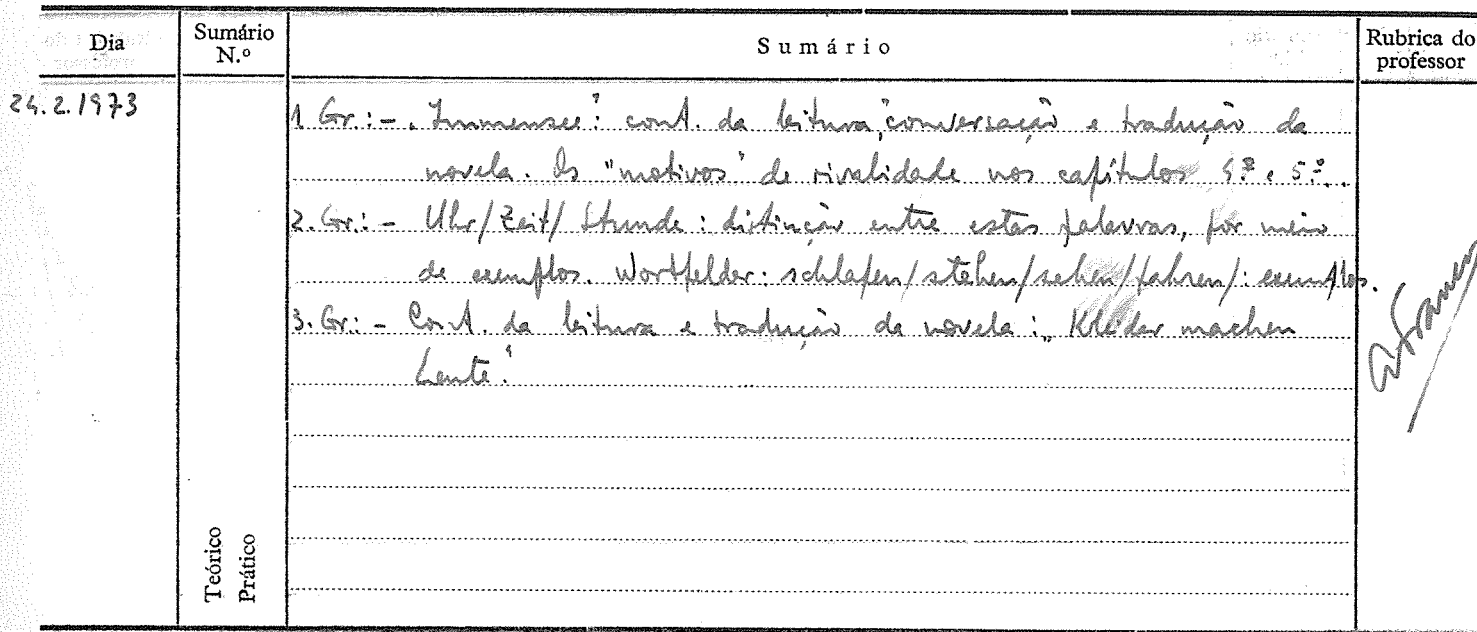 Dia
Sumário N.º
Sumário
Rubrica do professor
24.2.1973
1. Gr.: - „Immensee": cont. da leitura, conversação e tradução da
novela. Os "motivos" de rivalidade nos capítulos 4.º e 5.º.
2. Gr.: - Uhr/Zeit/Stunde: distinção entre estas palavras, por meio
de exemplos. Wortfelder: schlafen/stehen/sehen/fahren/: exemplos.
3. Gr.: - Cont. da leitura e tradução da novela: „Kleider machen
Leute".
Teórico
Prático